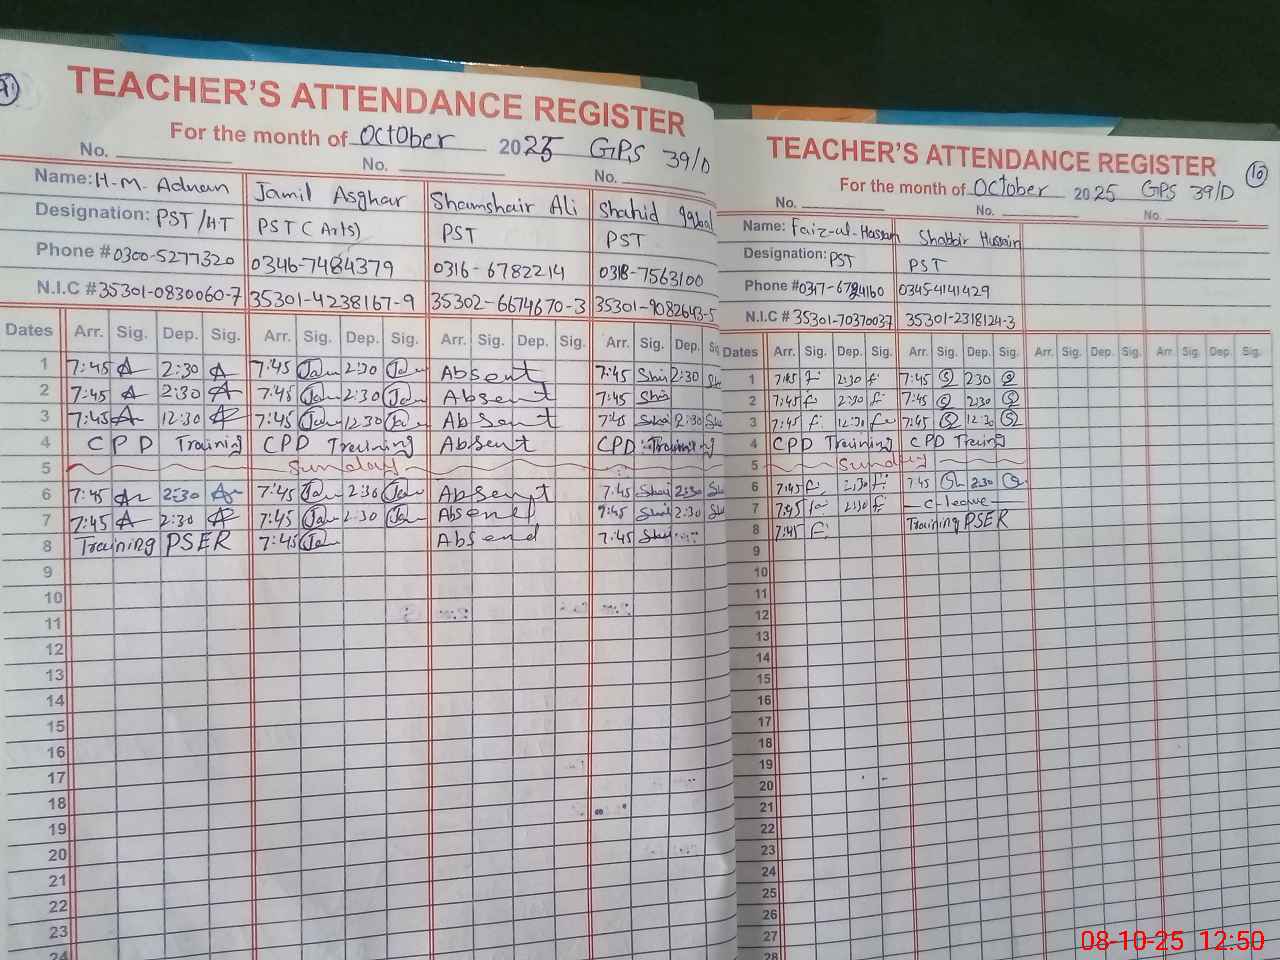 9
TEACHER'S ATTENDANCE REGISTER
For the month of October 2025 GPS 39/D
No. No. No.
Name: H.M. Adnan Jamil Asghar Shamshair Ali Shahid Iqbal
Designation: PST/HT PST (Arts) PST PST
Phone # 0300-5277320 0346-7484379 0316-6782214 0318-7563100
N.I.C # 35301-0830060-7 35301-4238167-9 35302-6674670-3 35301-9082643-5
Dates Arr. Sig. Dep. Sig. Arr. Sig. Dep. Sig. Arr. Sig. Dep. Sig. Arr. Sig. Dep.
1 7:45 2:30 7:45 Jam 2:30 Jam Absent 7:45 Sha 2:30
2 7:45 2:30 7:45 Jam 2:30 Jam Absent 7:45 Sha
3 7:45 12:30 7:45 Jam 12:30 Jam Absent 7:45 Sha 12:30
4 CPD Training CPD Treining Absent CPD Training
5 Sunday
6 7:45 2:30 7:45 Jam 2:30 Jam Absent 7:45 Sha 2:30
7 7:45 2:30 7:45 Jam 2:30 Jam Absent 7:45 Sha 2:30
8 Training PSER 7:45 Jam Absend 7:45 Sha
9
10
11
12
13
14
15
16
17
18
19
20
21
22
23
24
10
TEACHER'S ATTENDANCE REGISTER
For the month of October 2025 GPS 39/D
No. No. No.
Name: Faiz-ul-Hassan Shabbir Hussain
Designation: PST PST
Phone # 0345-4141429
N.I.C # 35301-70370037 35301-2318124-3
Dates Arr. Sig. Dep. Sig. Arr. Sig. Dep. Sig. Arr. Sig. Dep. Sig. Arr. Sig. Dep. Sig.
1 7:45 f 2:30 f 7:45 2:30
2 7:45 f 2:30 f 7:45 2:30
3 7:45 f 12:30 f 7:45 12:30
4 CPD Training CPD Treing
5 Sunday
6 7:45 f 2:30 f 7:45 2:30
7 7:45 f 2:30 f C-leave
8 7:45 f Training PSER
9
10
11
12
13
14
15
16
17
18
19
20
21
22
23
24
25
26
27
28
08-10-25 12:50